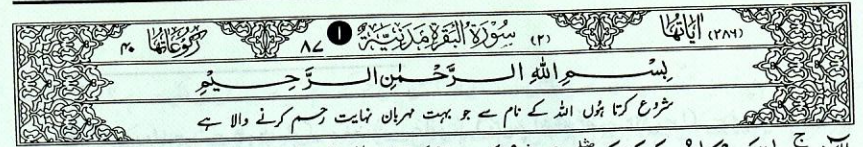 اٰیَاتُهَا (۲۸۶) (۲) سُوْرَةُ الْبَقَرَةِ مَدَنِيَّةٌ ۱ ۸۷ رُكُوْعَاتُهَا ۴۰
بِسْمِ اللّٰهِ الرَّحْمٰنِ الرَّحِيْمِ
شروع کرتا ہُوں اللہ کے نام سے جو بہت مہربان نہایت رحم کرنے والا ہے